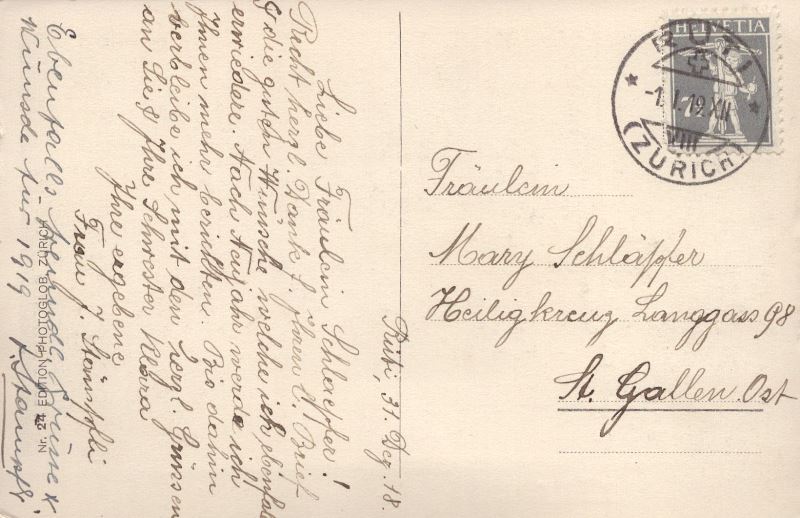 Rüti, 31. Dez. 18.
Liebe Fräulein Schlaepfer!
Recht herzl. Dank f. Ihren lb. Brief
& die guten Wünsche welche ich ebenfalls
erwiedere. Nach Neujahr werde ich
Ihnen mehr berichten. Bis dahin
verbleibe ich mit den herzl. Grüssen
an Sie & Ihre Schwester Klara
Ihre ergebene
Frau J. Stämpfli
Ebenfalls Grüsse &
Wünsche für 1919
Stämpfli
Nr. 24 EDITION PHOTOGLOB ZÜRICH
HELVETIA
RÜTI
-1.I.19.XII
VIII
(ZÜRICH)
Fräulein
Mary Schläpfer
Heiligkreuz Langgass 98
St. Gallen Ost